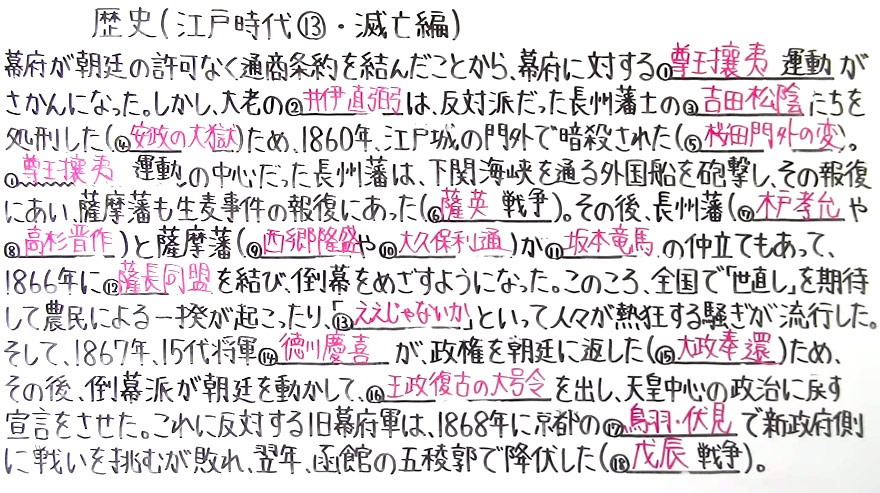 歴史(江戸時代⑬・滅亡編)
幕府が朝廷の許可なく通商条約を結んだことから、幕府に対する①尊王攘夷 運動が
さかんになった。しかし、大老の②井伊直弼は、反対派だった長州藩士の③吉田松陰たちを
処刑した(④安政の大獄)ため、1860年、江戸城の門外で暗殺された(⑤桜田門外の変)。
①尊王攘夷 運動の中心だった長州藩は、下関海峡を通る外国船を砲撃し、その報復
にあい、薩摩藩も生麦事件の報復にあった(⑥薩英 戦争)。その後、長州藩(⑦木戸孝允や
⑧高杉晋作)と薩摩藩(⑨西郷隆盛や⑩大久保利通)が⑪坂本竜馬の仲立てもあって、
1866年に⑫薩長同盟を結び、倒幕をめざすようになった。このころ、全国で「世直し」を期待
して農民による一揆が起こったり、「⑬ええじゃないか」といって人々が熱狂する騒ぎが流行した。
そして、1867年、15代将軍⑭徳川慶喜 が、政権を朝廷に返した(⑮大政奉還)ため、
その後、倒幕派が朝廷を動かして、⑯王政復古の大号令を出し、天皇中心の政治に戻す
宣言をさせた。これに反対する旧幕府軍は、1868年に京都の⑰鳥羽・伏見で新政府側
に戦いを挑むが敗れ、翌年、函館の五稜郭で降伏した(⑱戊辰 戦争)。